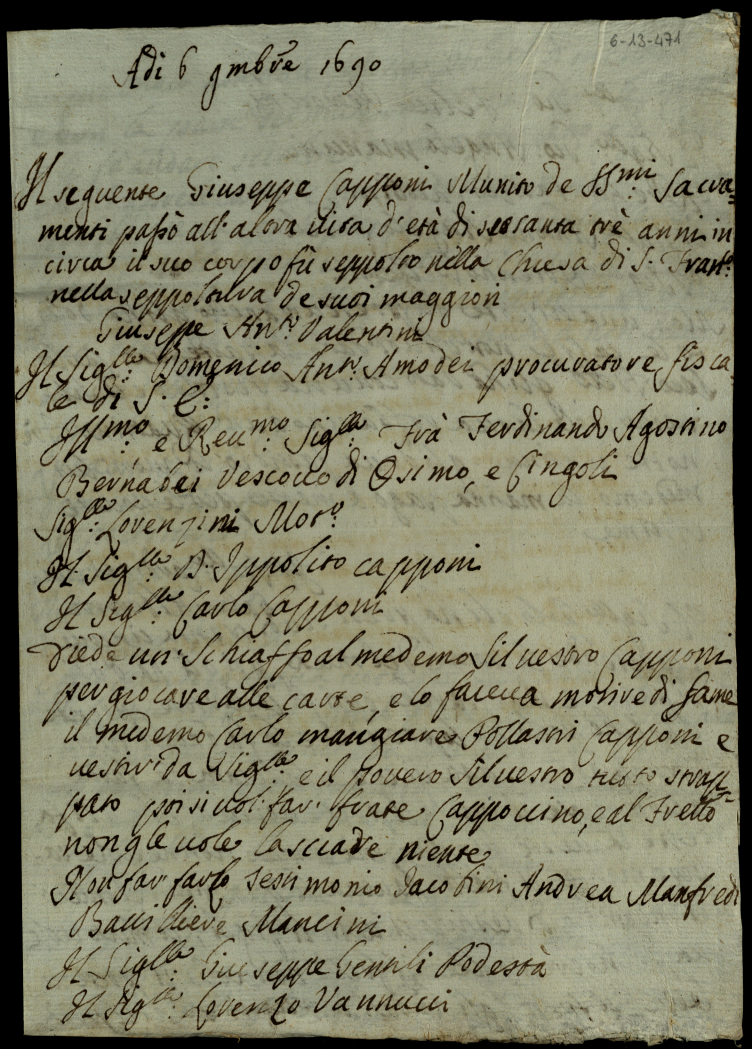 6-13-471
Adi 6 9mbre 1690
Il seguente Giuseppe Capponi Munito de SSmi: Sacra=
menti passò all'altra vita d'età di sessanta trè anni in
circa il suo corpo fù seppolto nella Chiesa di S. Franco:
nella seppoltura de suoi maggiori
Giuseppe Anto: Valentini
Il Siglle: Domenico Anto: Amodei procuratore fisca
le di S. C:
Illmo: e Reumo: Siglle: Frà Ferdinando Agostino
Bernabei Vescovo di Osimo, e Cingoli
Siglle: Lorenzini
Il Siglle: D. Ippolito capponi
Il Siglle: Carlo Capponi
diede un Schiaffo al medemo Silvestro Capponi
per giocare alle carte, e lo faceva morire di fame
il medemo Carlo mangiare Pollastri Capponi e
vestir da Siglle: e il povero Silvestro tutto strap=
pato poi si vol far frate Cappoccino, e al Frello
non gle vole lasciare niente
Non far farlo testimonio Jacobini Andrea Manfredi
Mancini
Il Siglle: Giuseppe Gentili Podestà
Il Siglle: Lorenzo Vannucci